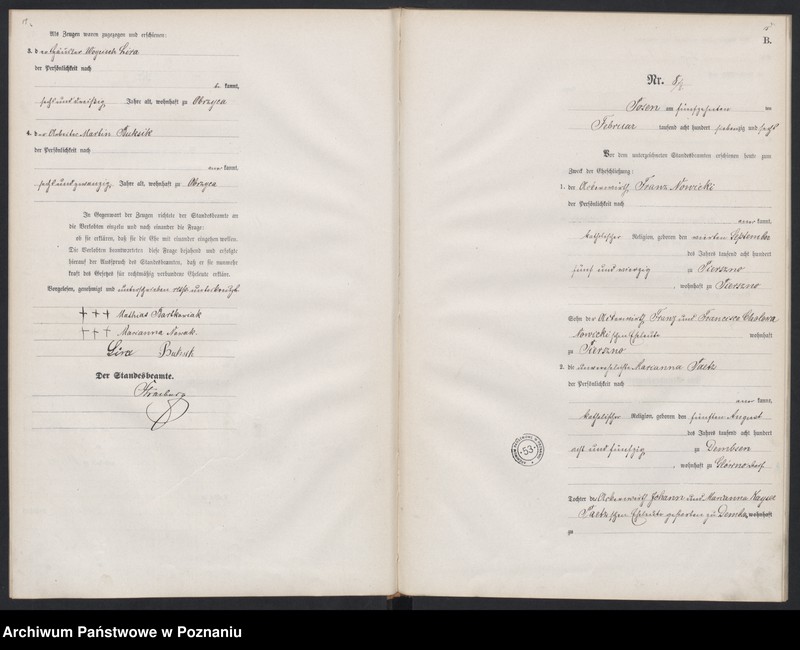 Als Zeugen waren zugezogen und erschienen:
3. der Häusler Woyciech Lira
der Persönlichkeit nach
be kannt,
sechs und dreißig Jahre alt, wohnhaft zu Obrzyca
4. der Arbeiter Martin
der Persönlichkeit nach
kannt,
sechs und zwanzig Jahre alt, wohnhaft zu Obrzyca
In Gegenwart der Zeugen richtete der Standesbeamte an
die Verlobten einzeln und nach einander die Frage:
ob sie erklären, daß sie die Ehe mit einander eingehen wollen.
Die Verlobten beantworteten diese Frage bejahend und erfolgte
hierauf der Ausspruch des Standesbeamten, daß er sie nunmehr
kraft des Gesetzes für rechtmäßig verbundene Eheleute erkläre.
Vorgelesen, genehmigt und unterschrieben resp. unterkreuzt
+++ Mathias Bartkowiak
+++ Marianna Nowak.
Lira
Der Standesbeamte.
B.
Nr. 8
Posen am fünfzehnten
Februar tausend acht hundert siebenzig und sechs
Vor dem unterzeichneten Standesbeamten erschienen heute zum
Zweck der Eheschließung:
1. der Ackerwirth Franz Nowicki
der Persönlichkeit nach
kannt,
katholischer Religion, geboren den vierten September
des Jahres tausend acht hundert
fünf und vierzig zu Pierszno
, wohnhaft zu Pierszno
Sohn der Ackerwirth Franz und Francisca
Nowicki'schen Eheleute wohnhaft
zu Pierszno
2. die unverehelichte Marianna
der Persönlichkeit nach
kannt,
katholischer Religion, geboren den fünften August
des Jahres tausend acht hundert
acht und fünfzig zu Dembsen
, wohnhaft zu
Tochter der Ackerwirth Johann und Marianna
schen Eheleute zu wohnhaft
zu
53
Archiwum Państwowe w Poznaniu